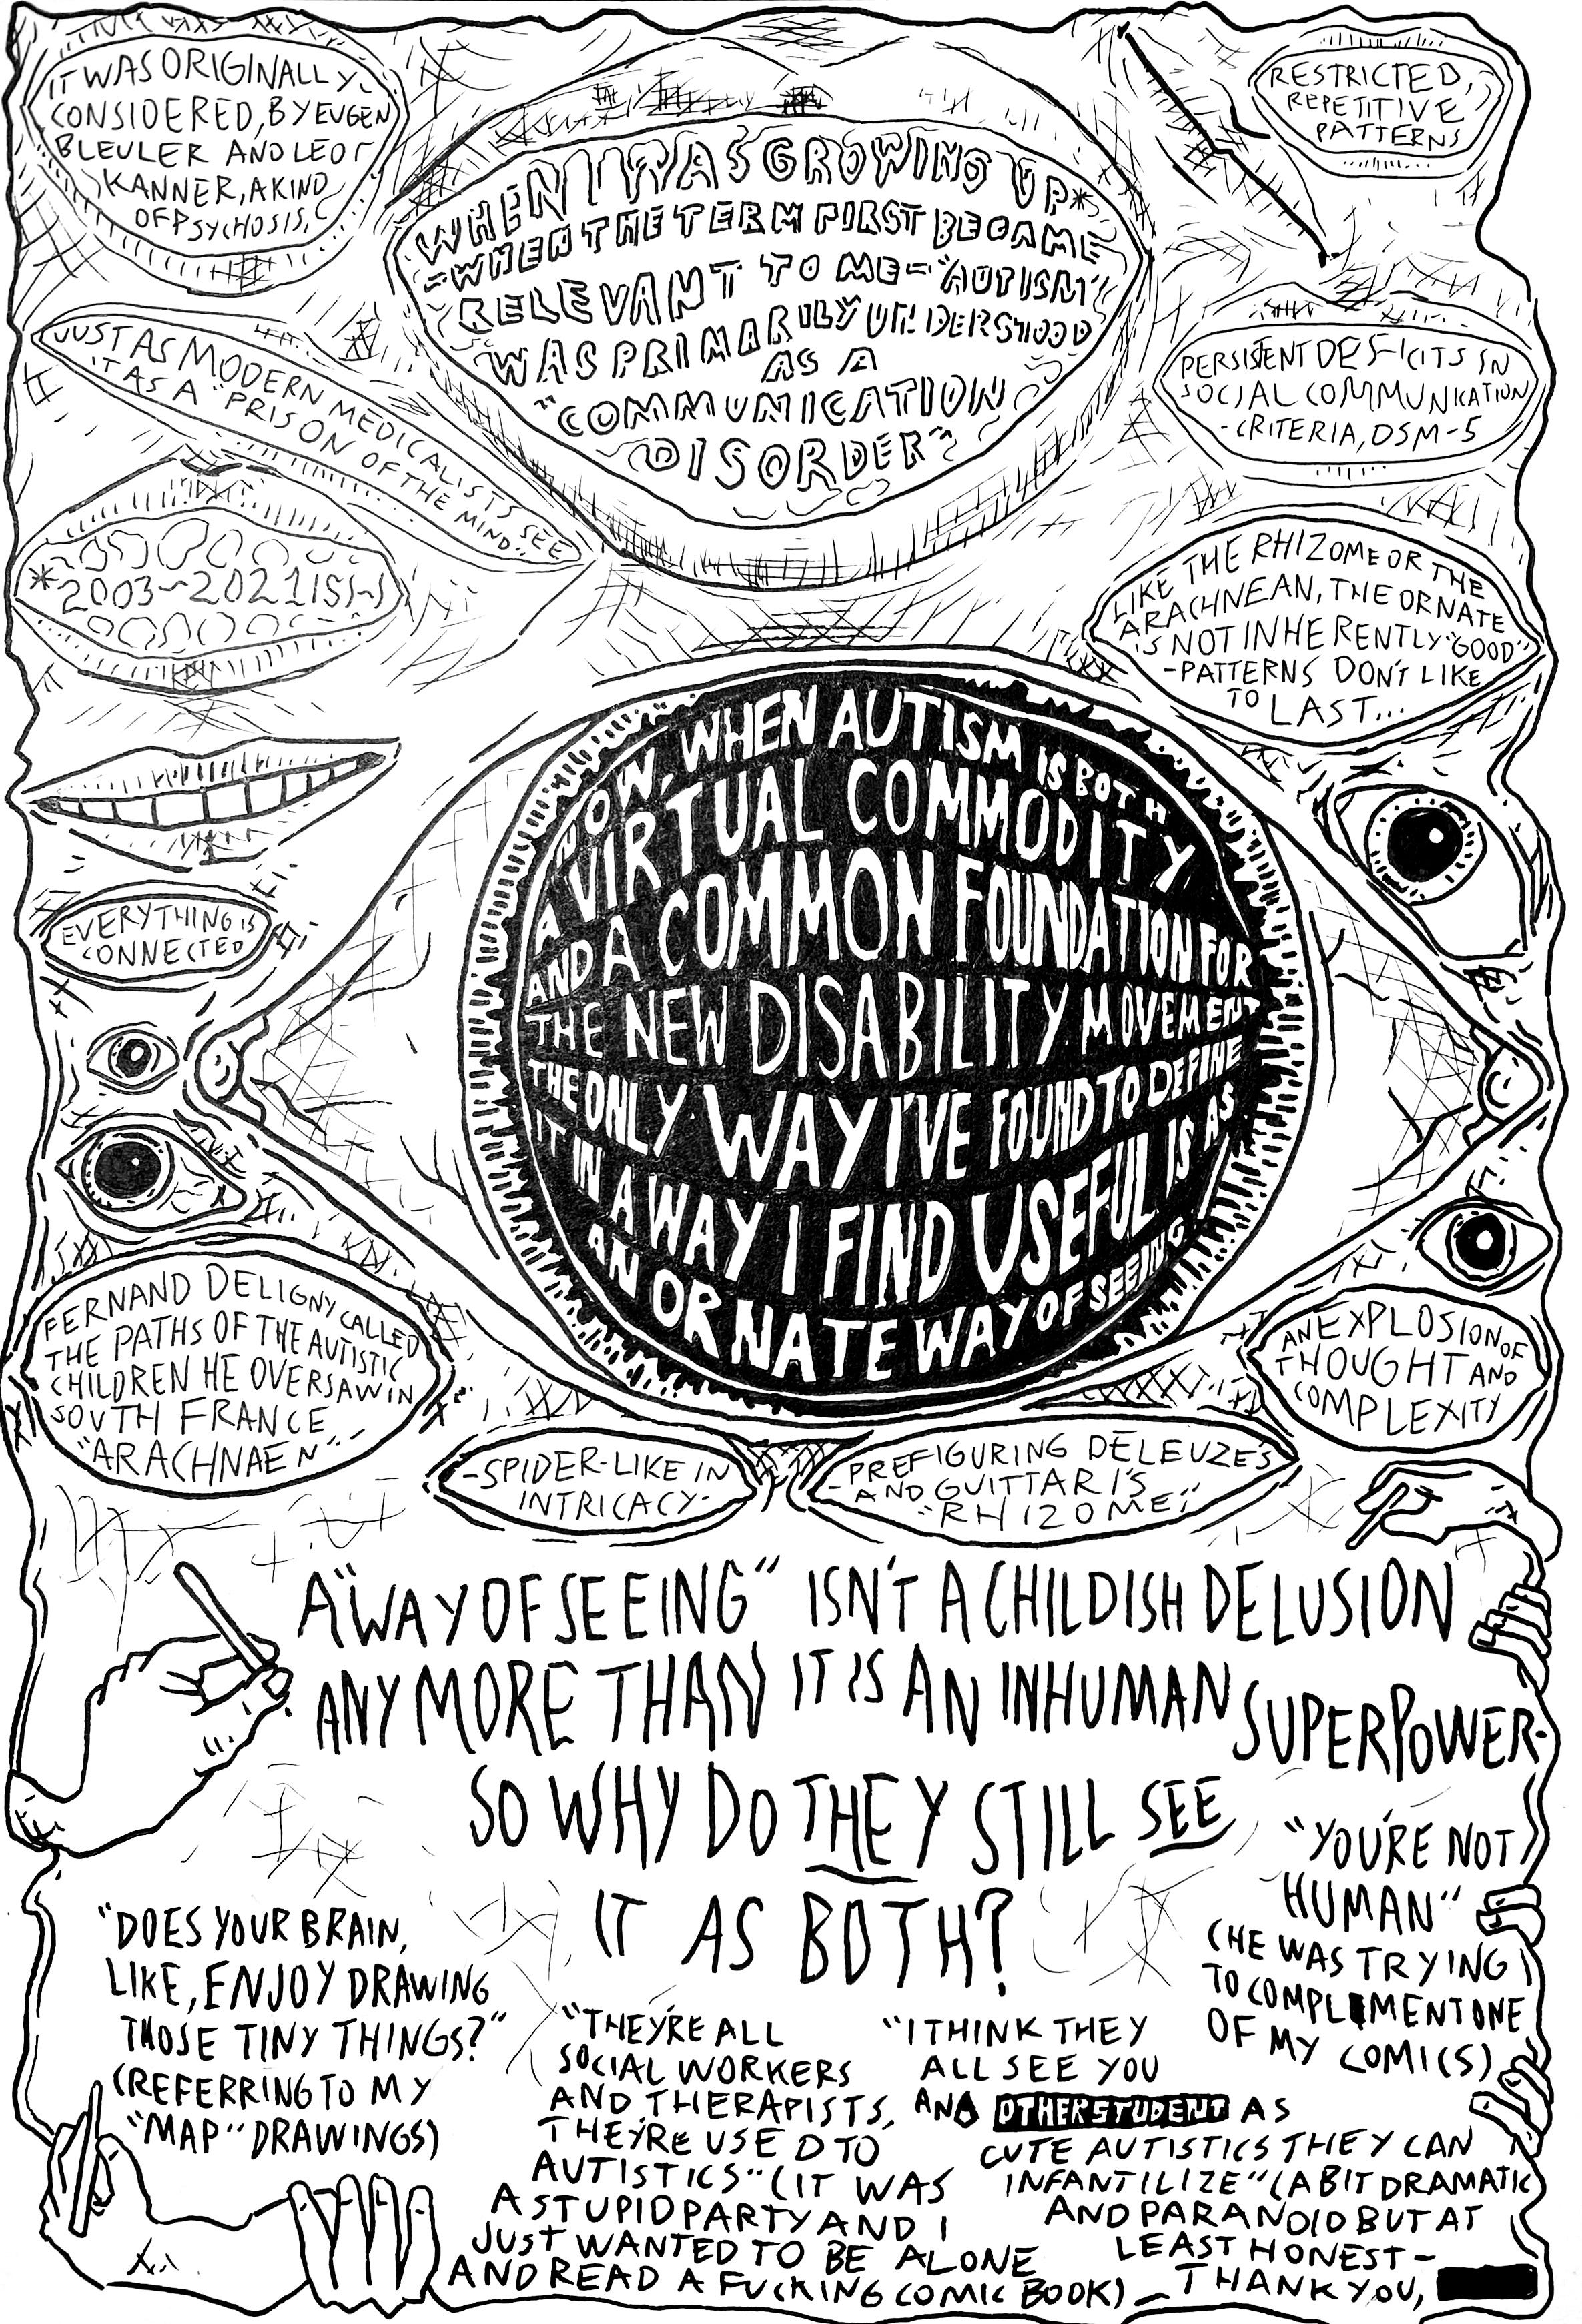 IT WAS ORIGINALLY
CONSIDERED, BY EUGEN
BLEULER AND LEO
KANNER, A KIND
OF PSYCHOSIS,
WHEN I WAS GROWING UP*
-WHEN THE TERM FIRST BECAME
RELEVANT TO ME- "AUTISM"
WAS PRIMARILY UNDERSTOOD
AS A
"COMMUNICATION
DISORDER"
RESTRICTED,
REPETITIVE
PATTERNS
JUST AS MODERN MEDICALISTS SEE
IT AS A "PRISON OF THE MIND."
PERSISTENT DEFICITS IN
SOCIAL COMMUNICATION
-CRITERIA, DSM-5
*2003-2021ISH
LIKE THE RHIZOME OR THE
ARACHNEAN, THE ORNATE
IS NOT INHERENTLY "GOOD"
-PATTERNS DON'T LIKE
TO LAST...
NOW, WHEN AUTISM IS BOTH
A VIRTUAL COMMODITY
AND A COMMON FOUNDATION FOR
THE NEW DISABILITY MOVEMENT
THE ONLY WAY I'VE FOUND TO DEFINE
IT IN A WAY I FIND USEFUL IS AS
AN ORNATE WAY OF SEEING
EVERYTHING IS
CONNECTED
FERNAND DELIGNY CALLED
THE PATHS OF THE AUTISTIC
CHILDREN HE OVERSAW IN
SOUTH FRANCE
"ARACHNAEN"-
-SPIDER-LIKE IN
INTRICACY-
-PREFIGURING DELEUZE'S
AND GUITTARI'S
"RHIZOME,"
AN EXPLOSION OF
THOUGHT AND
COMPLEXITY
A "WAY OF SEEING" ISN'T A CHILDISH DELUSION
ANYMORE THAN IT IS AN INHUMAN SUPERPOWER-
SO WHY DO THEY STILL SEE
IT AS BOTH?
"DOES YOUR BRAIN,
LIKE, ENJOY DRAWING
THOSE TINY THINGS?"
(REFERRING TO MY
"MAP" DRAWINGS)
"THEY'RE ALL
SOCIAL WORKERS
AND THERAPISTS,
THEY'RE USED TO
AUTISTICS" (IT WAS
A STUPID PARTY AND I
JUST WANTED TO BE ALONE
AND READ A FUCKING COMIC BOOK)
"I THINK THEY
ALL SEE YOU
AND OTHER STUDENT AS
CUTE AUTISTICS THEY CAN
INFANTILIZE" (A BIT DRAMATIC
AND PARANOID BUT AT
LEAST HONEST-
-THANK YOU,
"YOU'RE NOT
HUMAN"
(HE WAS TRYING
TO COMPLIMENT ONE
OF MY COMICS)